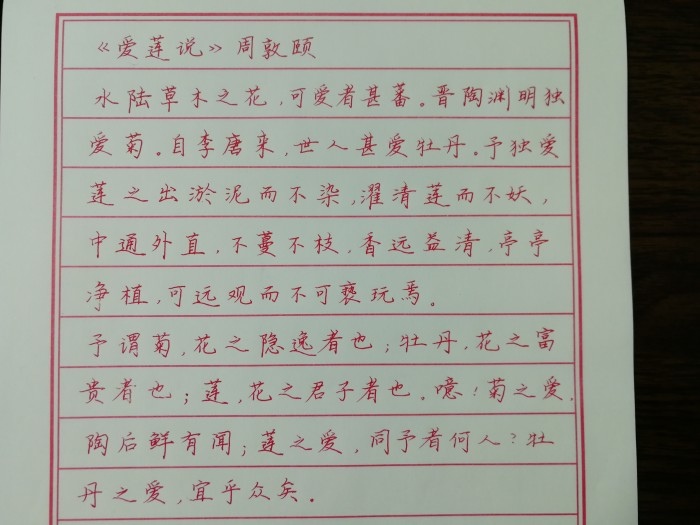 《爱莲说》周敦颐
水陆草木之花,可爱者甚蕃。晋陶渊明独
爱菊。自李唐来,世人甚爱牡丹。予独爱
莲之出淤泥而不染,濯清莲而不妖,
中通外直,不蔓不枝,香远益清,亭亭
净植,可远观而不可亵玩焉。
予谓菊,花之隐逸者也;牡丹,花之富
贵者也;莲,花之君子者也。噫!菊之爱,
陶后鲜有闻;莲之爱,同予者何人?牡
丹之爱,宜乎众矣。